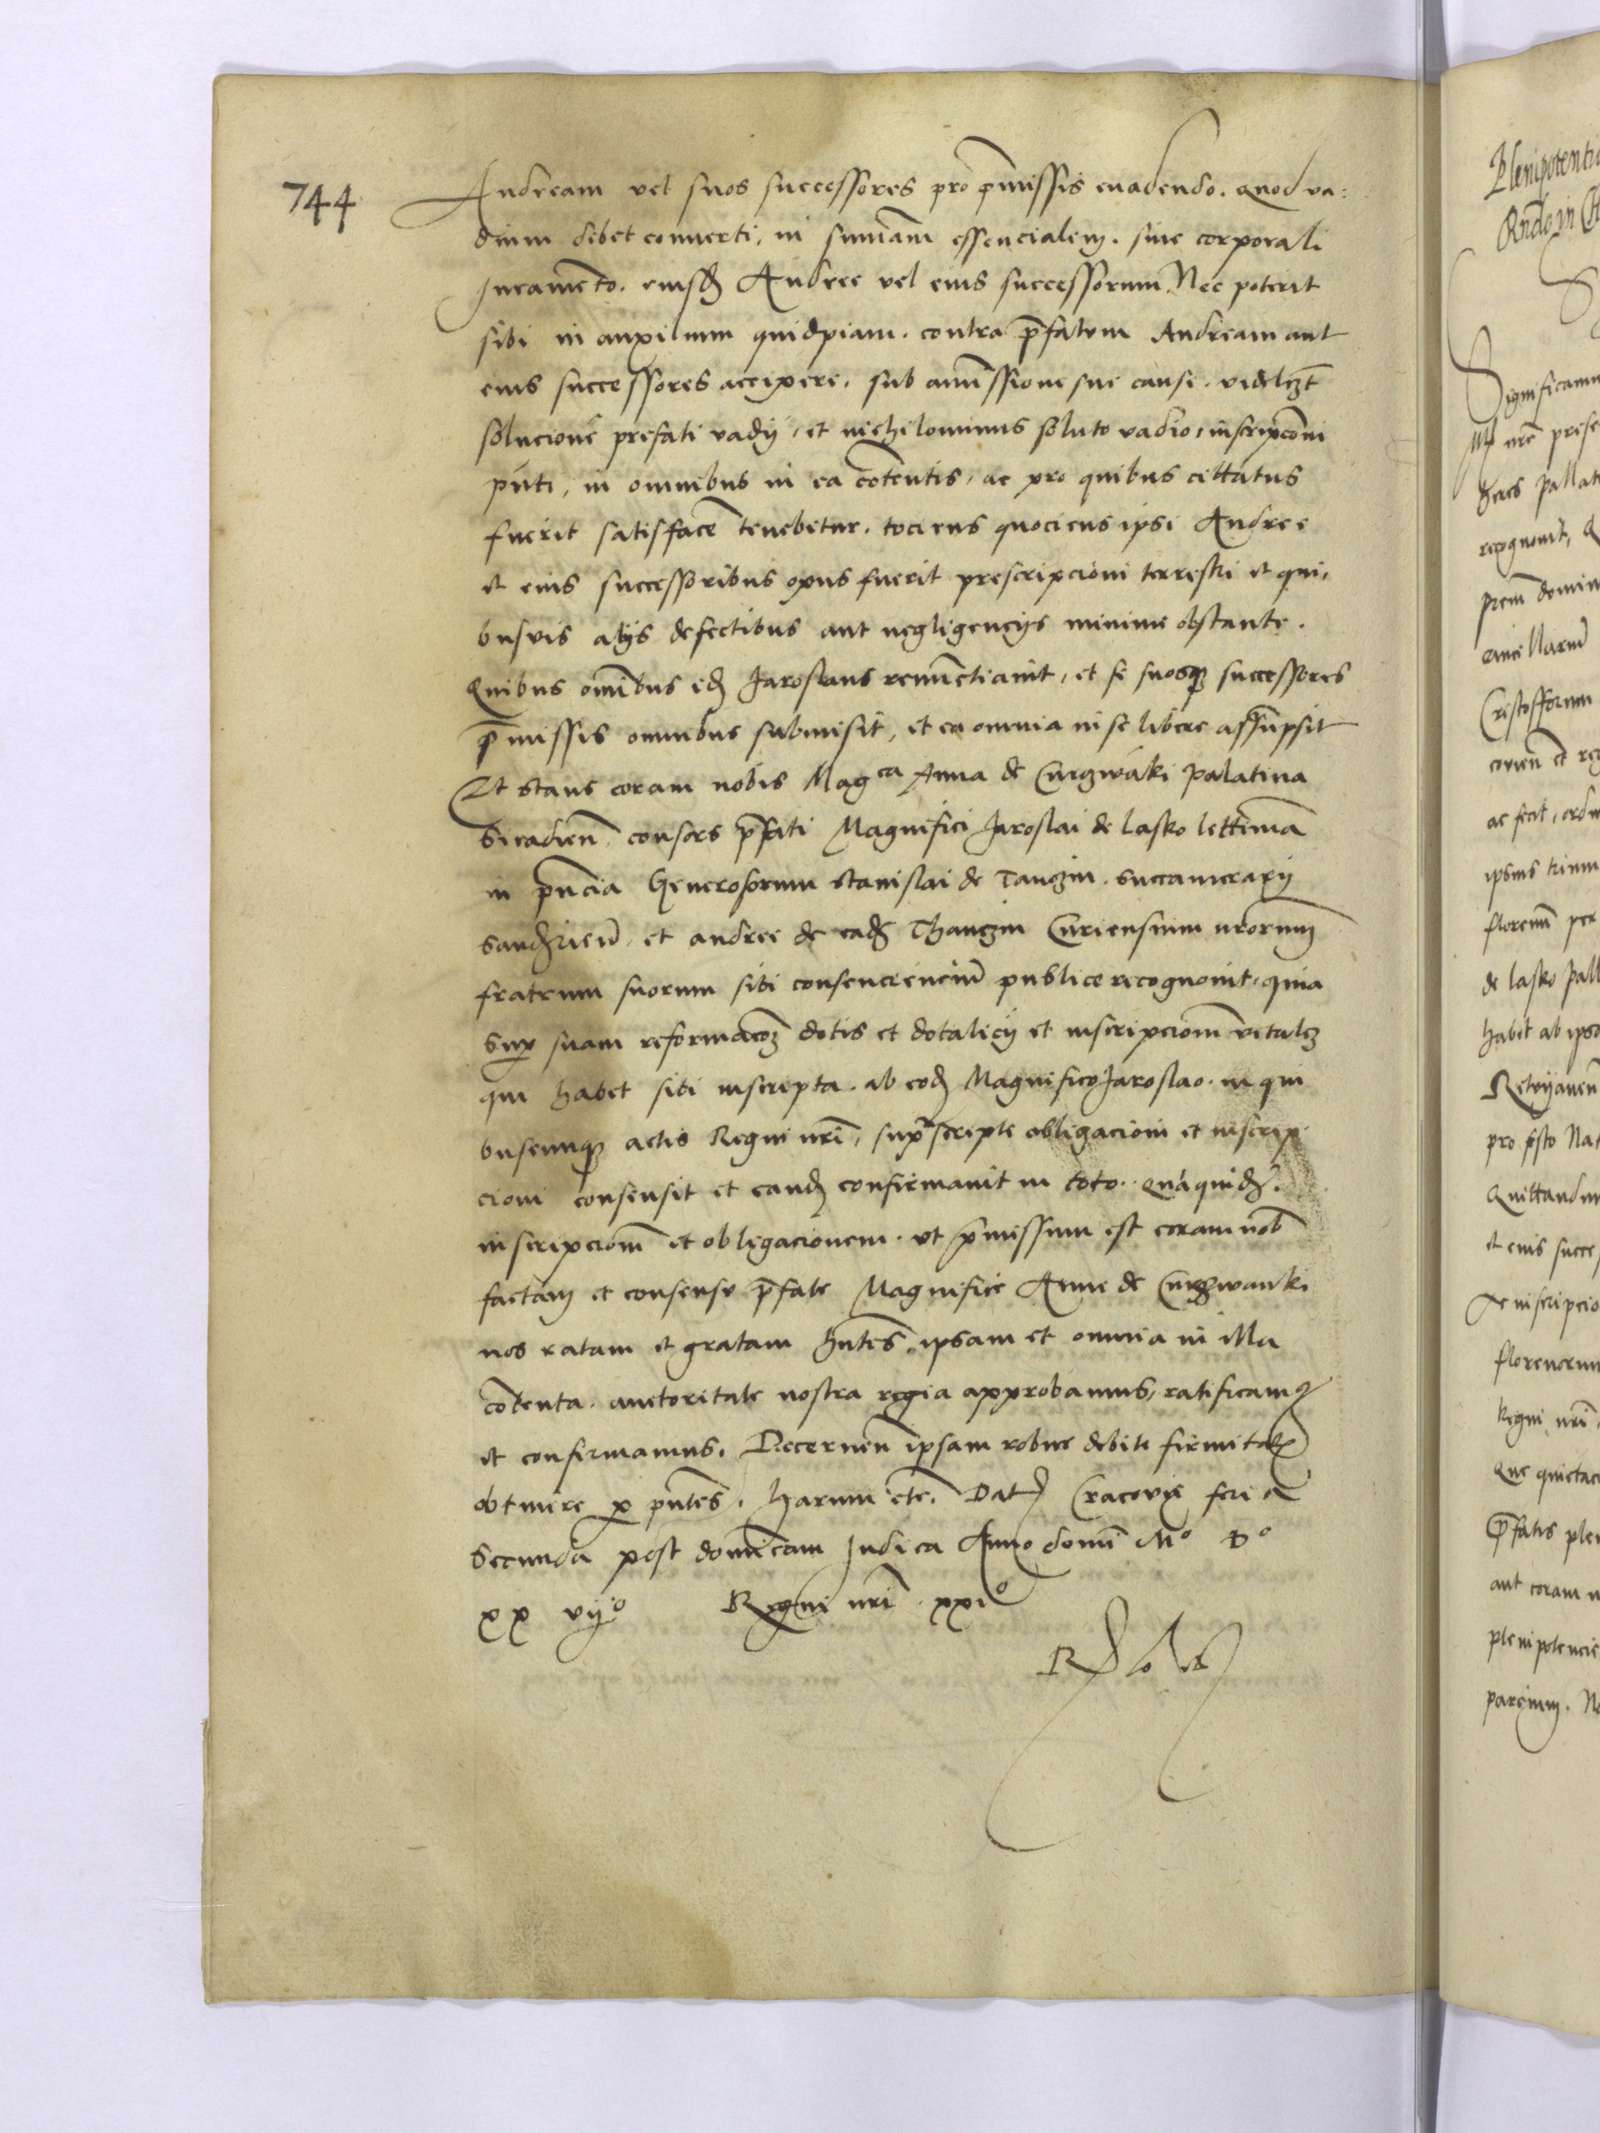 744
Andream vel suos successores pro p̄missis evadendo. quod va:
dium debet converti, in sum̄am essencialem. sine corporali
Juramēto. eiusd Andree vel eius successorum Nec poterit
sibi in auxilium quidpiam. contra p̄fatum Andream aut
eius successores accipere. sub amissione sue cause. videlizt
solucione prefati vadij, et nichilominus soluto vadio, inscripcōni
pn̄ti, in omnibus in ea cōtentis, ac pro quibus cittatus
fuerit satisfacē tenebitur. tociens quociens ipsi Andree
et eius successoribus opus fuerit prescripcioni terrestri et qui,
busvis alijs defectibus aut negligencijs minime obstante.
Quibus om̄ibus id Jaroslaus renūctiavit, et se suosq successores
p̄missis omnibus submisit, et ea omnia in se libere assūpsit
Et stans coram nobis Magca Anna de Curozwáki palatina
Siradien̄. consors p̄fati Magnifici Jaroslai de lasko lettimā
in pn̄cia Generosorum stanislai de Tanczin. Succamerarij
Sandzirieñ, et andree de ead Thanczin Curiensium nr̄orum
fratrum suorum sibi consenciēnciū publice recognovit, quia
Sup suam reformacōz dotis et dotalicij et inscripciōm vitalz
que habet sibi inscripta. ab eod Magnifico Jaroslao. in qui
buscunq actis Regni nr̄i, supscripte obligacioni et inscrip
cioni consensit et eand confirmavit in toto.. Quāquid.
inscripciōm et obligacionem. ut p̄missum est coram nob̄
factam et consensu p̄fate Magnifice Anne de Curozwanki
nos ratam et gratam hn̄tes. ipsam et omnia in illa
cōtenta. auctoritate nostra regia approbamus, ratificam9
et confirmamus. Decernen̄ ipsam robur debite firmitatis
obtinere p pn̄tes. harum etc. Dat Cracovie feria
Secunda post domīcam Judica Anno domī Mo Do
xx vijo Regni nr̄i xxio
Plenipotentia
Significamus
nr̄e prese
heres pallat
recognovit, Q
domin
ancillarum
Cristofforum
ac fecit, ordi
ipsius trium
florenū per
de lasko pall
habet ab ipso
pro p̄sto Na
Quittandum
et eius succes
inscripcio
florenorum
Regni nr̄i
Que quietac
p̄fatis plen
aut coram n
plenipotencie
parcium. No